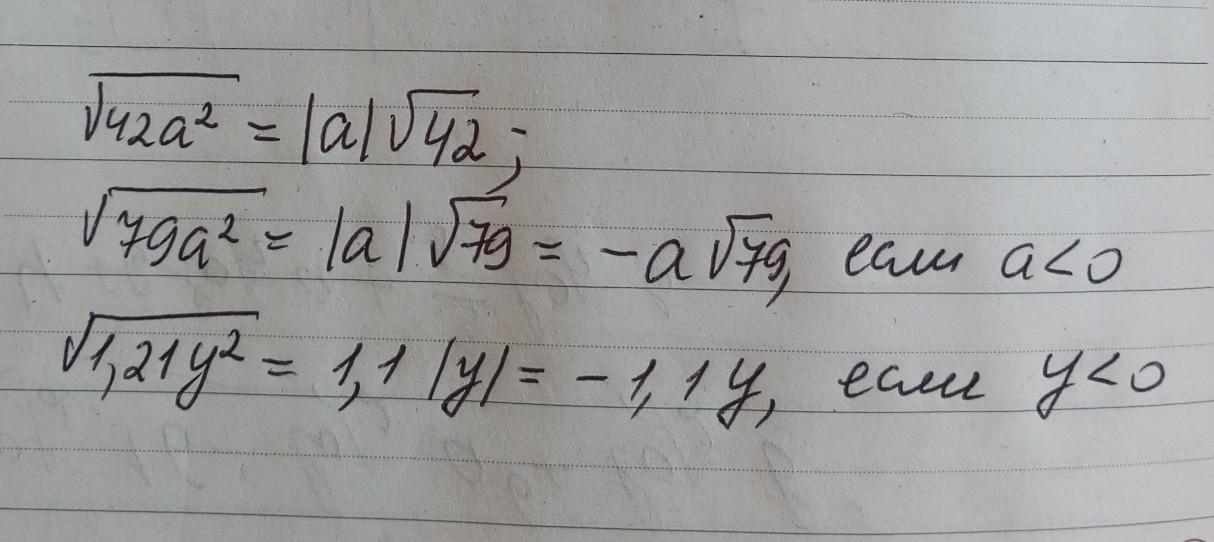 √42a² = |a|√42;
√79a² = |a|√79 = -a√79, если a<0
√1,21y² = 1,1|y| = -1,1y, если y<0